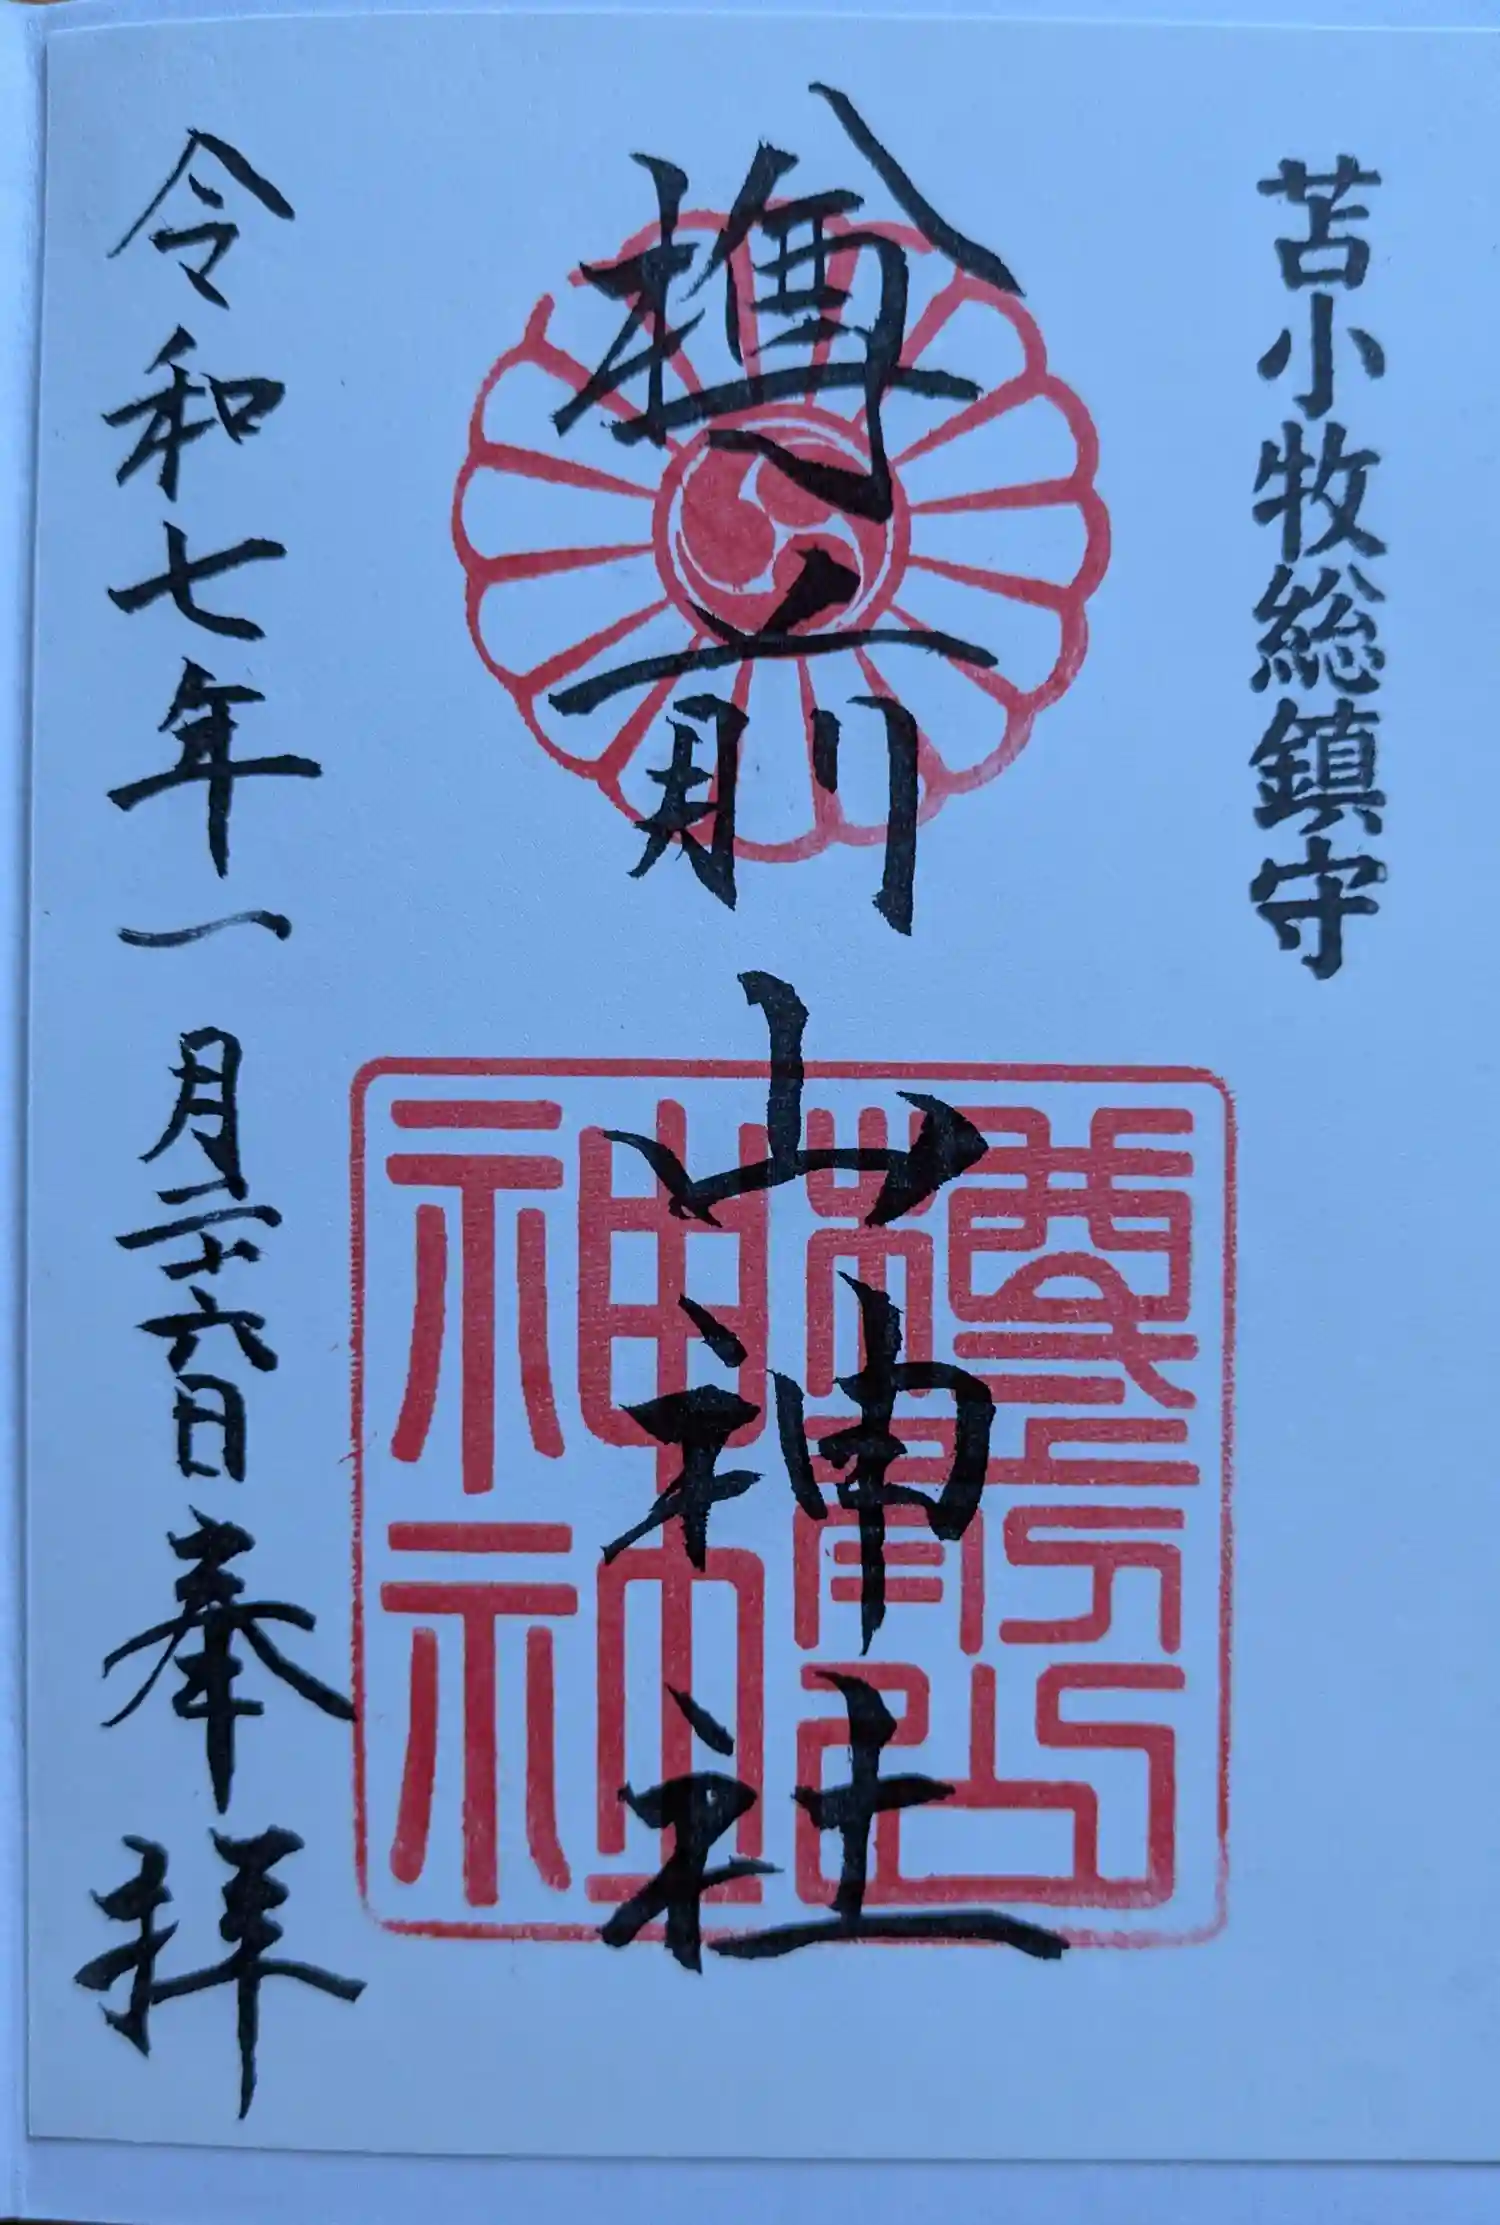 苫小牧総鎮守
樽前山神社
樽前山神社
令和七年一月二十六日奉拝